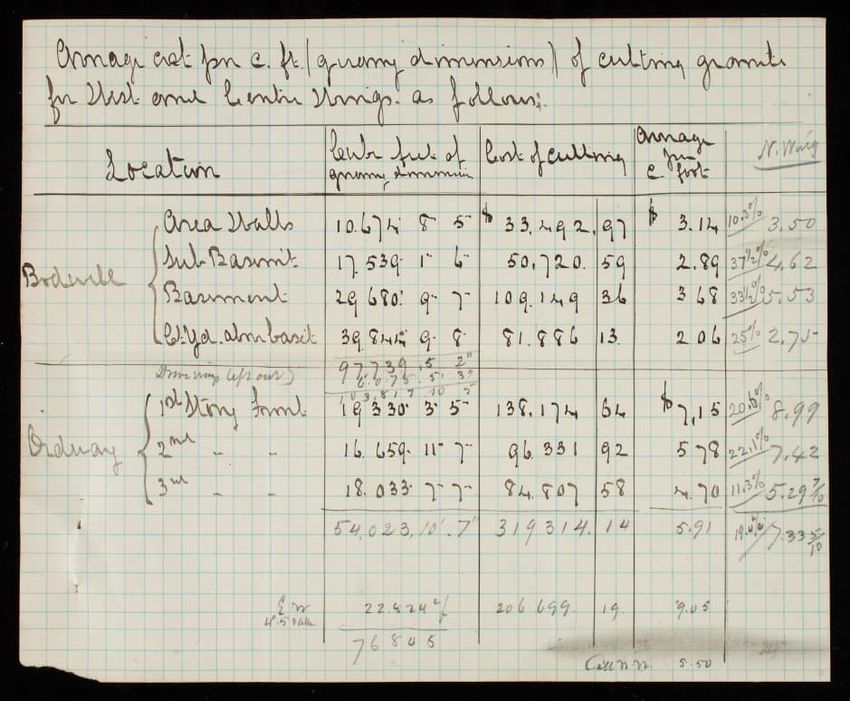 Average cost per c. ft. (quarry dimensions) of cutting granite
for West and Centre Wings. as follows:
Location
Cubic feet of quarry dimension
Cost of Cutting
Average per c. foot
N. Wing
Bodwell
Area Walls 10.674' 8 5 $ 33,492.97 $ 3.14 10.3% 3.50
Sub Basem't 17.539 1" 6" 50,720.59 2.89 37½% 4.62
Basement 29 680' 9 7 109.149 36 3 68 33½% 5.53
Ct. Yd. 39.844 9 8 81.886 13 2 06 25% 2.75
97,739.5 2"
(left out) 6.078.5.3"
103,817 10 5
Ordway
1st Story Front 19 330 3 5 138,174 64 $ 7,15 20.5% 8.99
2nd " " 16.659 11 7 96.331 92 5 78 22.1% 7.42
3rd " " 18.033 7 7 84.807 58 4.70 11.3% 5.29 7/10
54,023,10'.7" 319314.14 5.91 7.33 5/10
22.824 206 699. 19. 9.05
76805
5.50